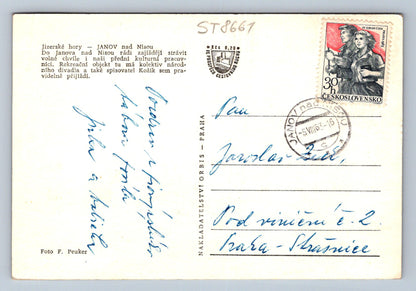 ST8661
Jizerské hory — JANOV nad Nisou
Do Janova nad Nisou rádi zajíždějí strávit
volné chvíle i naši přední kulturní pracov-
níci. Rekreační objekt tu má kolektiv národ-
ního divadla a také spisovatel Kožík sem pra-
videlně přijíždí.
Pozdrav z pionýrského
tábora
Jirka a
Foto F. Peuker
NAKLADATELSTVÍ ORBIS - PRAHA
30 h
ČESKOSLOVENSKO
JANOV nad NISOU
Pan
Jaroslav
Pod viniční č. 2
Praha - Strašnice